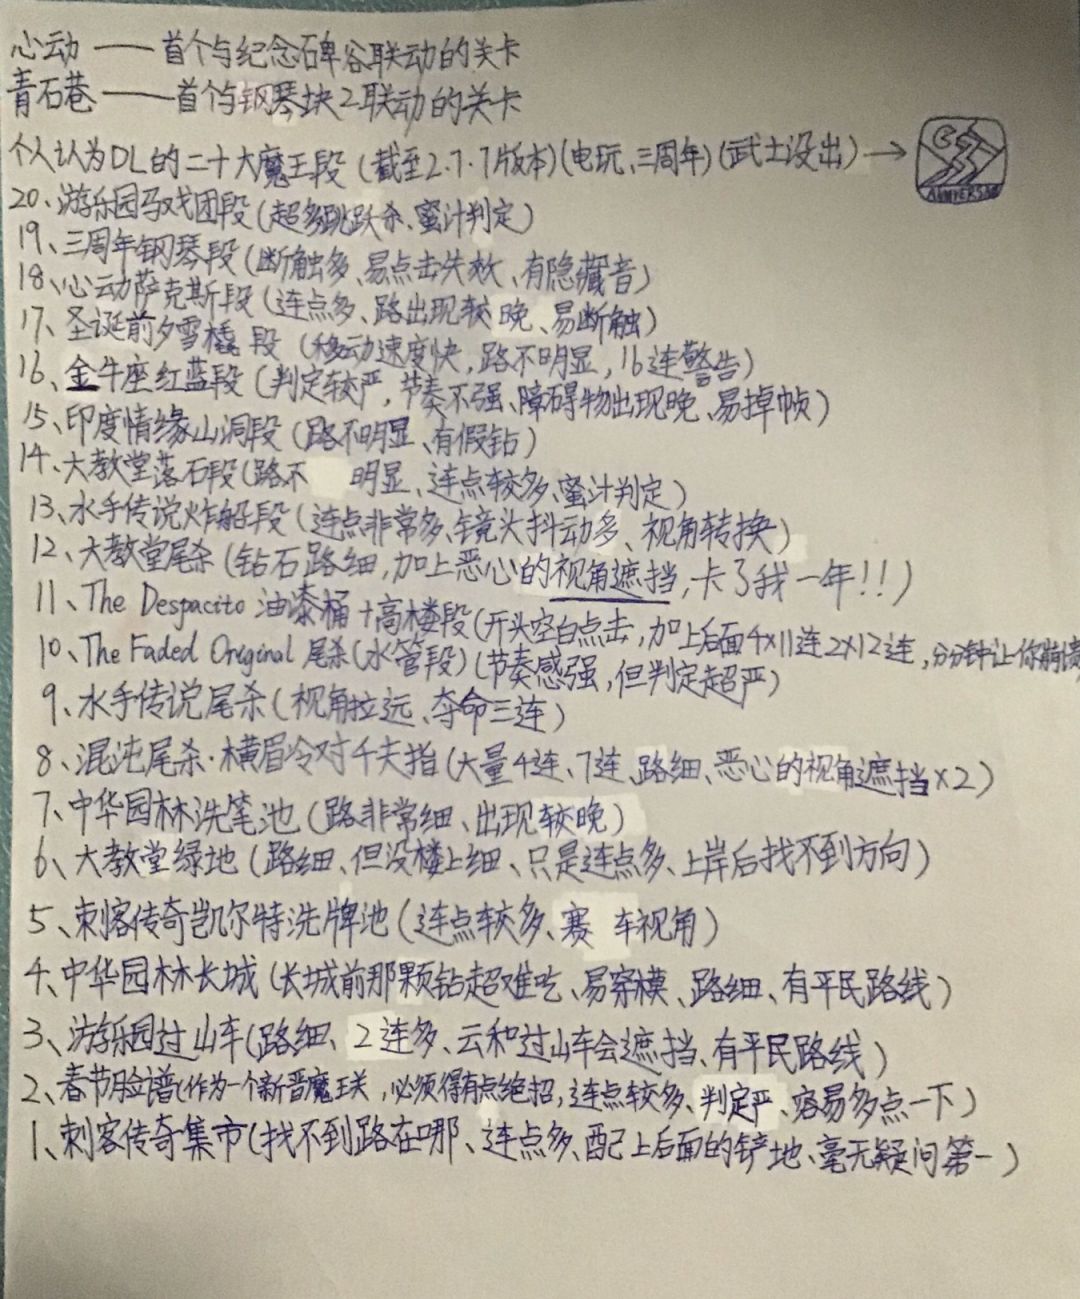 心动——首个与纪念碑谷联动的关卡
青石巷——首个与钢琴块2联动的关卡
个人认为DL的二十大魔王段(截至2.7.7版本)(电玩、三周年)(武士没出)→
ANNIVERSARY
20、游乐园马戏团段(超多跳跃杀、蜜汁判定)
19、三周年钢琴段(断触多、易点击失效、有隐藏音)
18、心动萨克斯段(连点多、路出现较晚、易断触)
17、圣诞前夕雪橇段(移动速度快,路不明显,16连警告)
16、金牛座红蓝段(判定较严,节奏不强、障碍物出现晚、易掉帧)
15、印度情缘山洞段(路不明显、有假钻)
14、大教堂落石段(路不 明显、连点较多、蜜汁判定)
13、水手传说炸船段(连点非常多、镜头抖动多、视角转换)
12、大教堂尾杀(钻石路细,加上恶心的视角遮挡,卡了我一年!!)
11、The Despacito 油漆桶+高楼段(开头空白点击,加上后面4×11连2×12连,分分钟让你崩溃
10、The Faded Original 尾杀(水管段)(节奏感强,但判定超严)
9、水手传说尾杀(视角拉远、夺命三连)
8、混沌尾杀·横眉冷对千夫指(大量4连、7连、路细、恶心的视角遮挡×2)
7、中华园林洗笔池(路非常细、出现较晚)
6、大教堂绿地(路细、但没楼上细、只是连点多、上岸后找不到方向)
5、刺客传奇凯尔特洗牌池(连点较多、赛 车视角)
4、中华园林长城(长城前那颗钻超难吃、易穿模、路细、有平民路线)
3、游乐园过山车(路细、2连多、云和过山车会遮挡、有平民路线)
2、春节脸谱(作为一个新晋魔王关,必须得有点绝招,连点较多、判定严、容易多点一下)
1、刺客传奇集市(找不到路在哪、连点多、配上后面的铲地、毫无疑问第一)